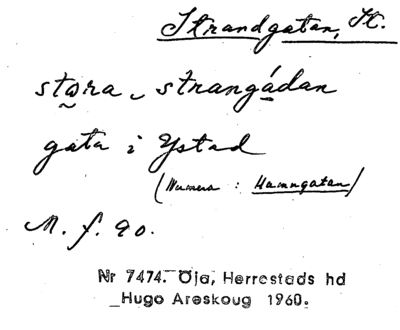 Strandgatan, St.
stɷra strangádan
gata i Ystad
(Numera : Hamngatan)
M. f. 90.
Nr 7474. Öja, Herrestads hd
Hugo Areskoug 1960.